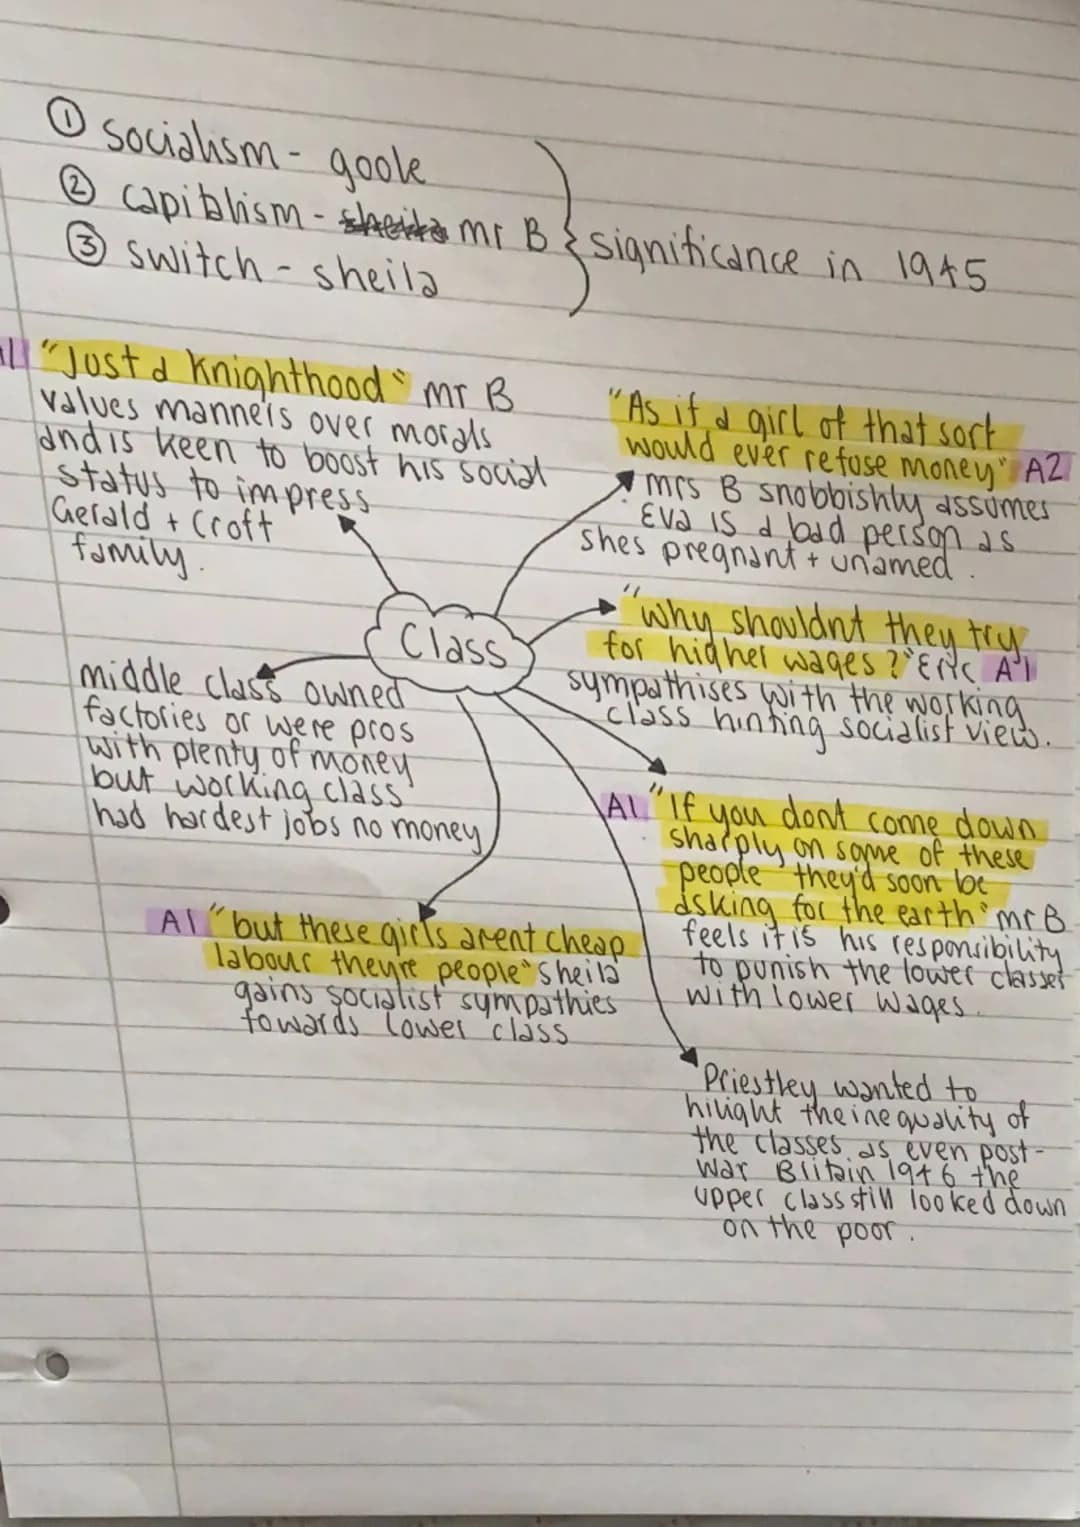 ① socialism - goole
② capitalism - sheila mr B
③ switch - sheila
significance in 1945
A1 "Just a knighthood" mr B
values manners over morals
and is keen to boost his social
status to impress
Gerald + Croft
family.
"As if a girl of that sort
would ever refuse money" A2
mrs B snobbishly assumes
Eva is a bad person as
shes pregnant + unamed.
"why shouldnt they try
for higher wages?" Eric A1
sympathises with the working
class hinting socialist view.
Class
middle class owned
factories or were pros
with plenty of money
but working class
had hardest jobs no money
A1 "If you dont come down
sharply on some of these
people they'd soon be
asking for the earth" mr B
feels it is his responsibility
to punish the lower classes
with lower wages.
A1 "but these girls arent cheap
labour theyre people" Sheila
gains socialist sympathies
towards lower class
Priestley wanted to
hilight the inequality of
the classes as even post-
war Britain 1946 the
upper class still looked down
on the poor.